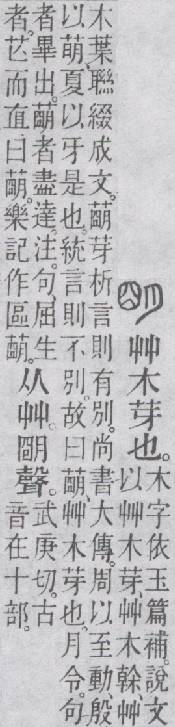 萌艸木芽也。木字依玉篇補。說文
以艸木芽、艸木榦、艸
木葉聯綴成文。萌芽析言則有別。尚書大傳。周以至動。殷
以萌。夏以牙。是也。統言則不別。故曰萌、艸木芽也。月令。句
者畢出。萌者盡達。注。句、屈生
者。芒而直曰萌。樂記作區萌。
从艸。朙聲。武庚切。古
音在十部。